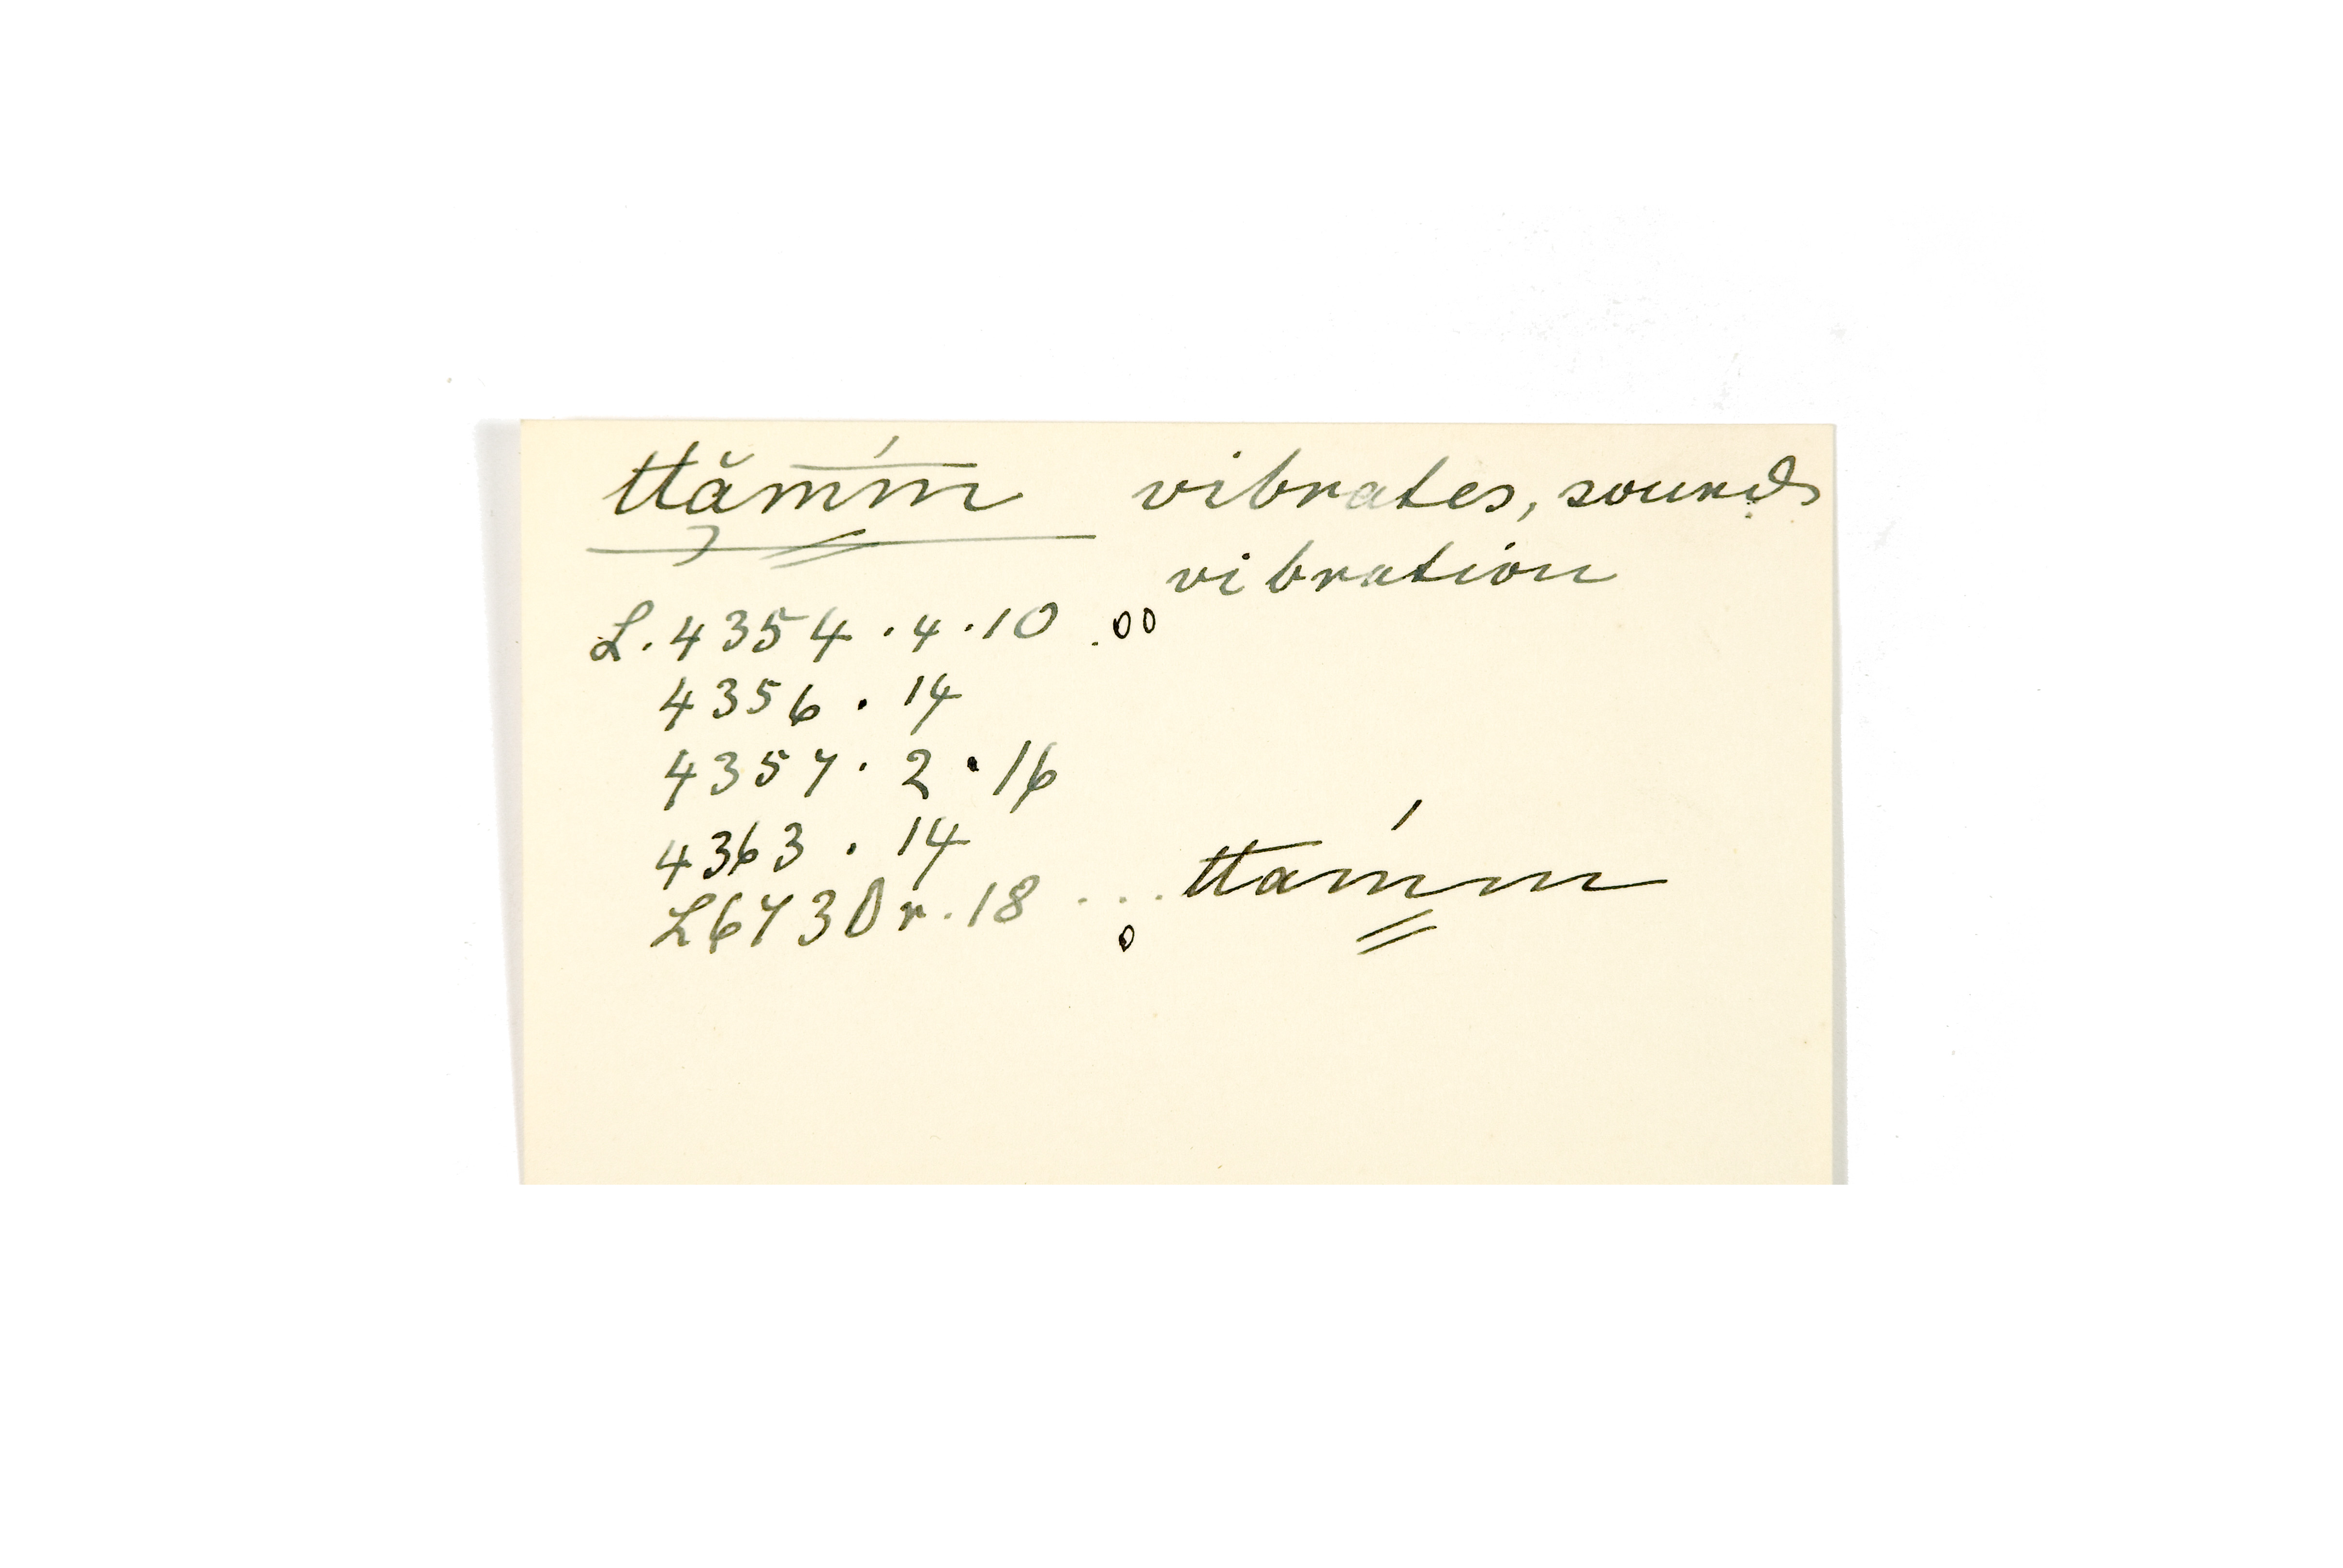 ttắm̄m vibrates, sounds
vibration
L. 4354 . 4 . 10 . 00
4356 . 14
4357 . 2 . 16
4363 . 14
L 673 Dr . 18 ... ttaḿm
0